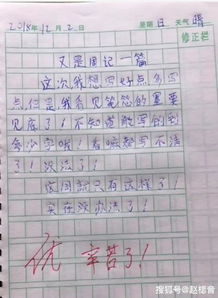 2018年12月2日 星期日 天气晴
修正栏
又是周记一篇
这次我想写好点多写
点但是我看见笔您的墨要
见底了!不知道能写的到
多少字呢!看嘛都写不活
了!没法了!
这周就只有这样了!
实在没办法了!
优 辛苦了!
搜狐号@赵榁音